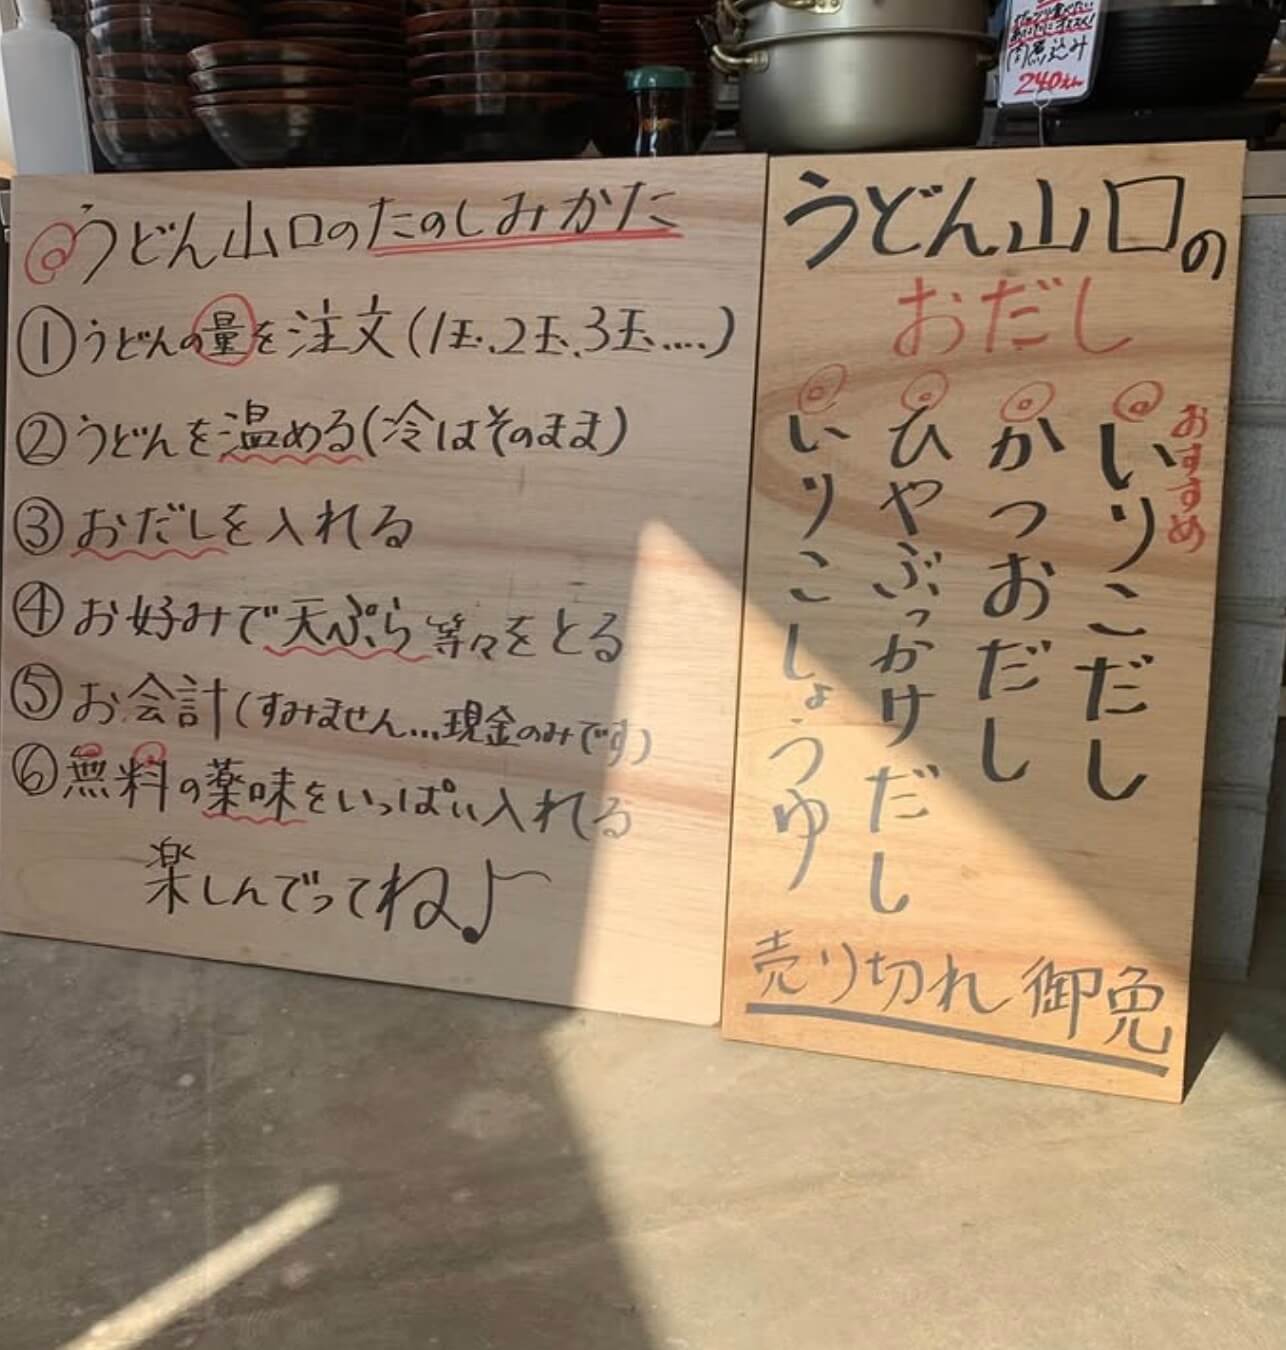 うどん山口のたのしみかた
①うどんの量を注文(1玉.2玉.3玉....)
②うどんを温める(冷はそのまま)
③おだしを入れる
④お好みで天ぷら等々をとる
⑤お会計(すみません...現金のみです)
⑥無料の薬味をいっぱい入れる
楽しんでってね♪
うどん山口の
おだし
おすすめ
いりこだし
かつおだし
ひやぶっかけだし
いりこしょうゆ
売り切れ御免
煮込み
240